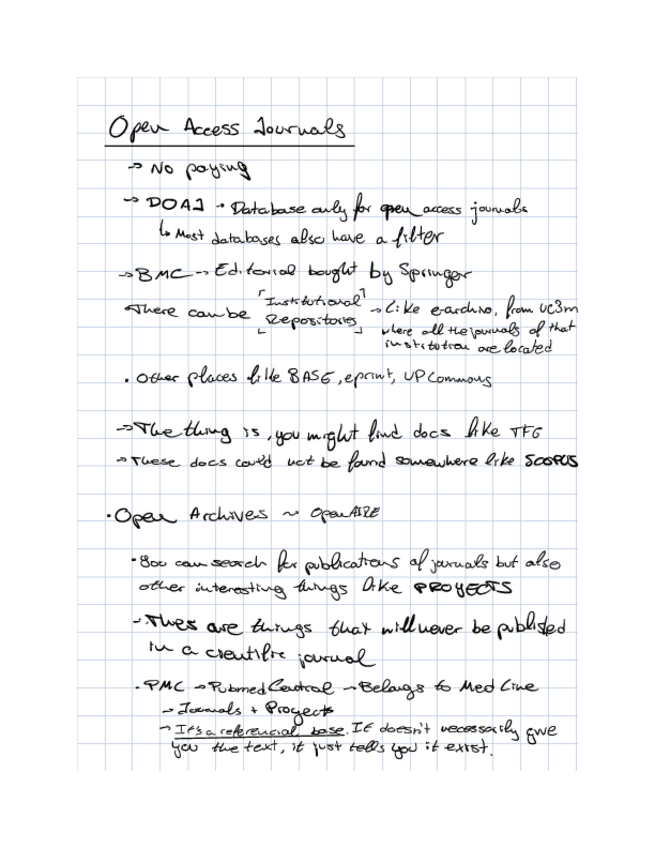 Open Access Journals
→ No paying
→ DOAJ • Database only for open access journals
↳ Most databases also have a filter
→ BMC → Editorial bought by Springer
There can be [Institutional Repositories] → Like e-archivo, from UC3m
where all the journals of that
institution are located
• Other places like BASE, eprint, UPCommons
→ The thing is, you might find docs like TFG
→ These docs could not be found somewhere like SCOPUS
• Open Archives ~ OpenAIRE
• You can search for publications of journals but also
other interesting things like PROYECTS
- Thes are things that will never be publisged
in a cientifre journal
• PMC → Pubmed Central → Belongs to Med Line
→ Journals + Proyects
→ It's a referencial base. It doesn't necessarily give
you the text, it just tells you it exist.